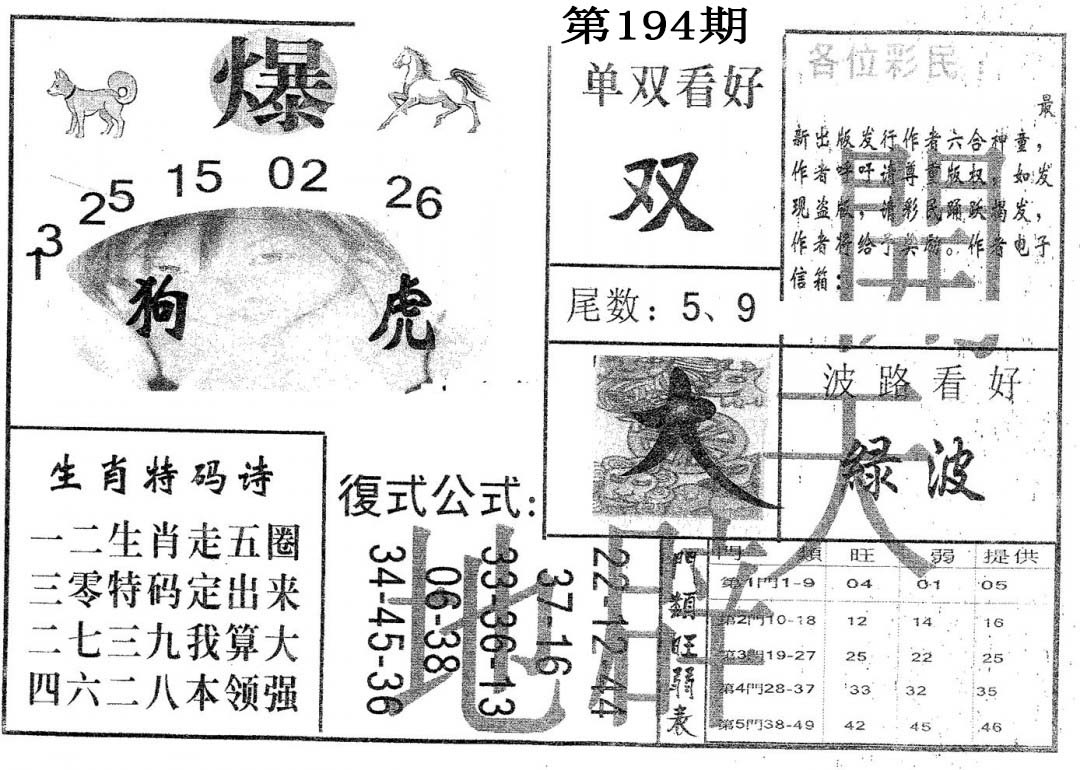 第194期
爆
13
25
15
02
26
狗 虎
单双看好
双
尾数：5、9
各位彩民：
最
新出版发行作者六合神童，
作者呼吁请尊重版权，如发
现盗版，请彩民踊跃揭发，
作者将给予奖励。作者电子
信箱：
波路看好
大
绿波
開
天
地
生肖特码诗
一二生肖走五圈
三零特码定出来
二七三九我算大
四六二八本领强
復式公式：
34-45-36
06-38
33-36-13
37-16
22-12-44
門類旺弱表
門 類 旺 弱 提供
第1門1-9 04 01 05
第2門10-18 12 14 16
第3門19-27 25 22 25
第4門28-37 33 32 35
第5門38-49 42 45 46